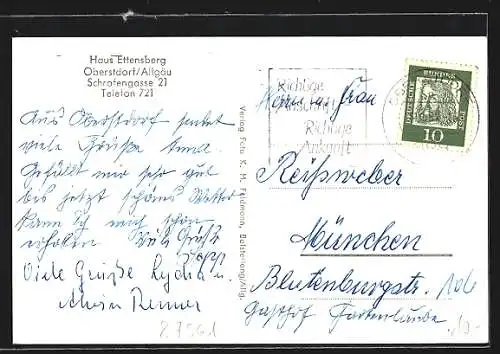 Haus Ettensberg
Oberstdorf/Allgäu
Schrofengasse 21
Telefon 721
Aus Oberstdorf sendet
viele Grüße Anna.
Gefällt mir sehr gut
bis jetzt schöns Wetter
kann ich mich schön
erholen. Viele Grüße
Viele Grüße Lydia u.
Alwin Renner
27561
Verlag Foto K. H. Feldmann, Balsterang/Allg.
Richtige
Anschrift
Richtige
Ankunft
DEUTSCHE BUNDESPOST
10
Herrn u. Frau
Reißweber
München
Blutenburgstr. 106
Gasthof Gartenlaube
10.-